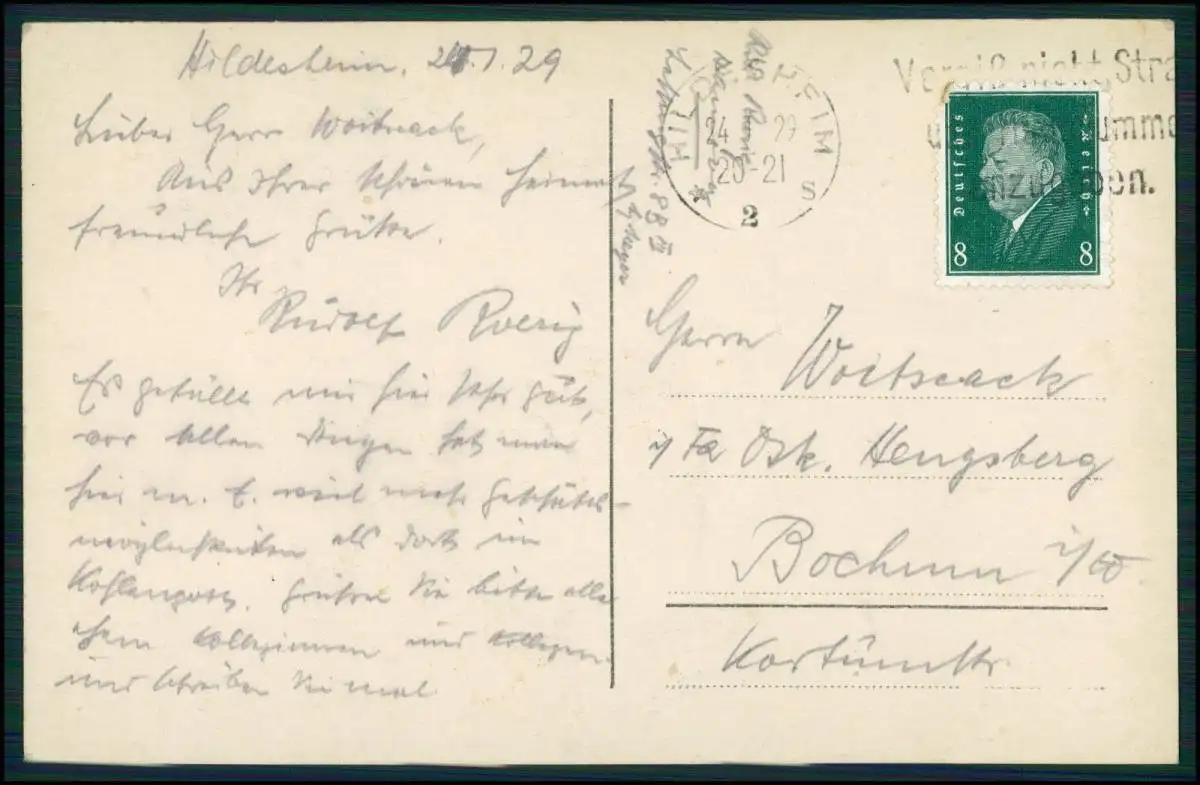 Hildesheim, 24.1.29
Lieber Herr Woitscack,
Aus Ihrer schönen Heimat
freundliche Grüße.
Ihr
Rudolf Roerig
Es gefällt mir hier sehr gut,
vor allen Dingen hat man
hier m. E. weit mehr Geschäfts-
möglichkeiten als dort im
Kohlenpott. Grüßen Sie bitte alle
Kolleginnen und Kollegen
und schreiben Sie mal
HEIM
24 29
20-21
2
S
Vergiß nicht, Stra
umme
anzugeben.
Deutsches Reich
8 8
Herrn
Woitscack
Fa Osk. Hengsberg
Bochum i/W.
Kortumstr.